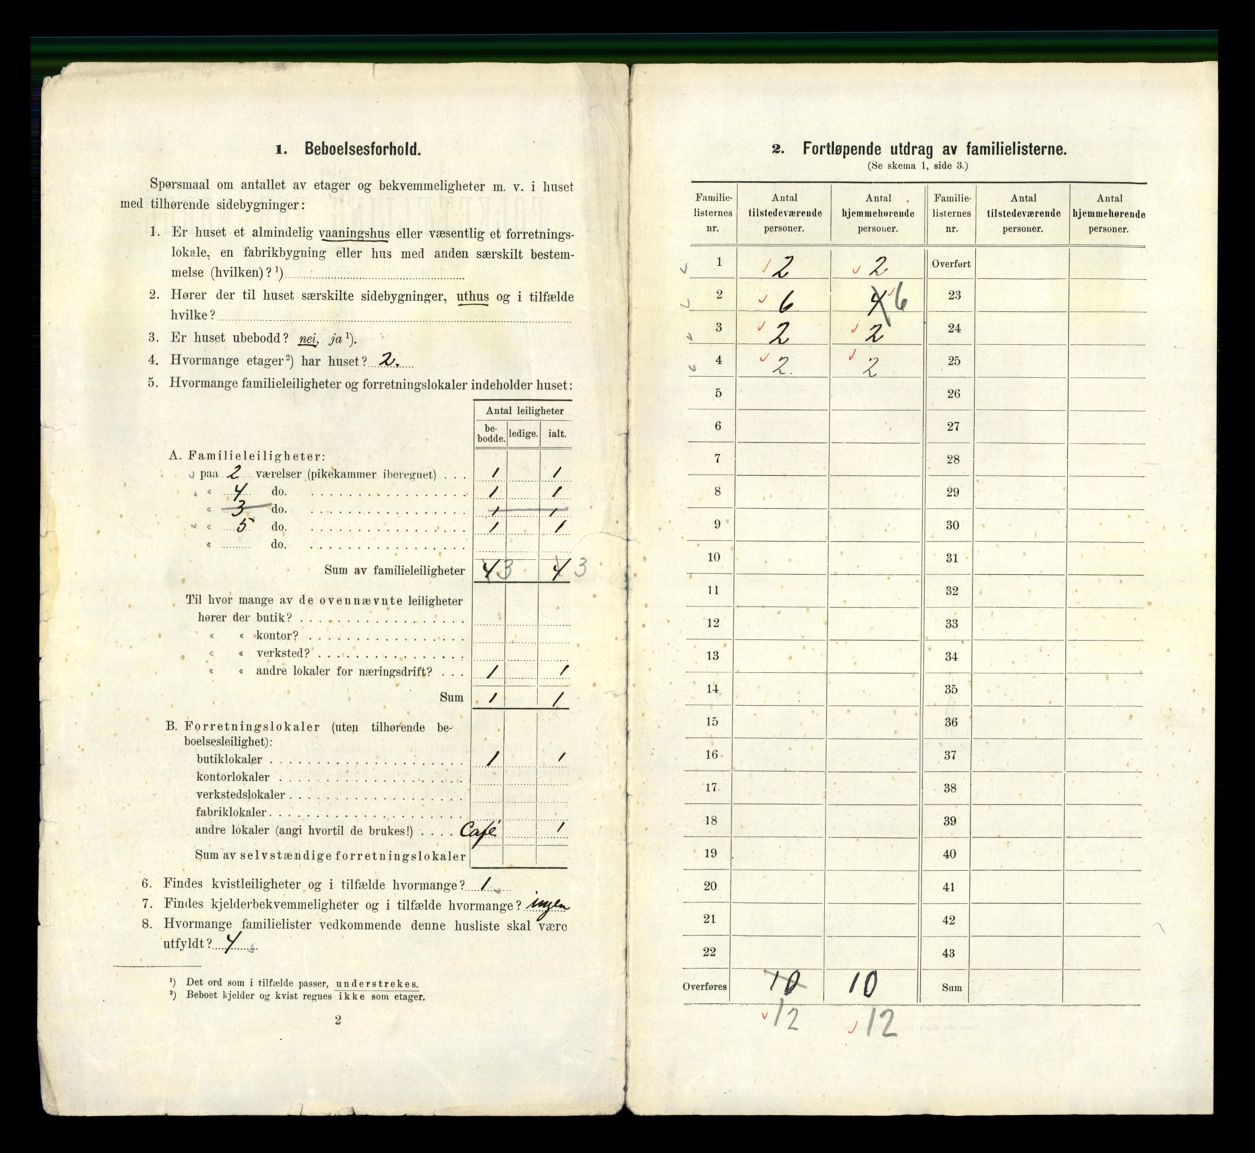 1. Beboelsesforhold.
Spørsmaal om antallet av etager og bekvemmeligheter m. v. i huset
med tilhørende sidebygninger:
1. Er huset et almindelig vaaningshus eller væsentlig et forretnings-
lokale, en fabrikbygning eller hus med anden særskilt bestem-
melse (hvilken)? ¹)
2. Hører der til huset særskilte sidebygninger, uthus og i tilfælde
hvilke?
3. Er huset ubebodd? nei, ja ¹).
4. Hvormange etager ²) har huset? 2.
5. Hvormange familieleiligheter og forretningslokaler indeholder huset:
Antal leiligheter
be-bodde. ledige. ialt.
A. Familieleiligheter:
paa 2 værelser (pikekammer iberegnet) . . . 1 1
« 4 do. 1 1
« 3 do. 1 1
« 5 do. 1 1
« do.
Sum av familieleiligheter 4 3 4 3
Til hvor mange av de ovennævnte leiligheter
hører der butik?
« « kontor?
« « verksted?
« « andre lokaler for næringsdrift? . . . 1 1
Sum 1 1
B. Forretningslokaler (uten tilhørende be-
boelsesleilighet):
butiklokaler 1 1
kontorlokaler
verkstedslokaler
fabriklokaler
andre lokaler (angi hvortil de brukes!) . . . . Café 1
Sum av selvstændige forretningslokaler
6. Findes kvistleiligheter og i tilfælde hvormange? 1
7. Findes kjelderbekvemmeligheter og i tilfælde hvormange? ingen
8. Hvormange familielister vedkommende denne husliste skal være
utfyldt? 4
¹) Det ord som i tilfælde passer, understrekes.
²) Beboet kjelder og kvist regnes ikke som etager.
2
2. Fortløpende utdrag av familielisterne.
(Se skema 1, side 3.)
Familie-listernes nr. Antal tilstedeværende personer. Antal hjemmehørende personer. Familie-listernes nr. Antal tilstedeværende personer. Antal hjemmehørende personer.
1 2 2 Overført
2 6 4 6 23
3 2 2 24
4 2 2 25
5 26
6 27
7 28
8 29
9 30
10 31
11 32
12 33
13 34
14 35
15 36
16 37
17 38
18 39
19 40
20 41
21 42
22 43
Overføres 10 10 Sum
12 12